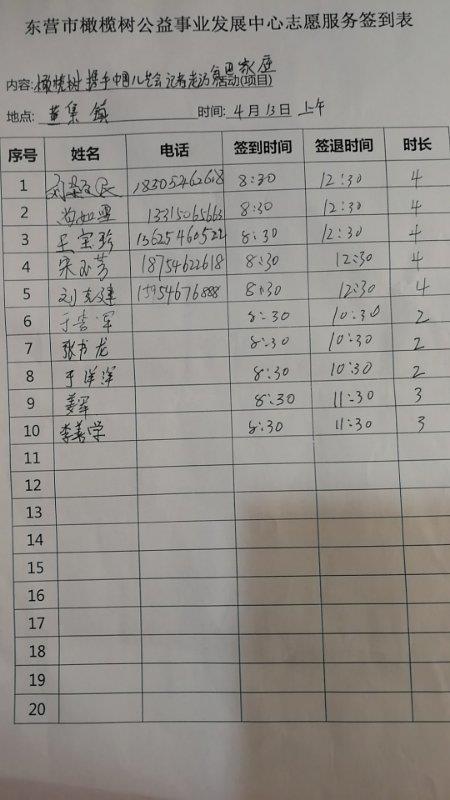 东营市橄榄树公益事业发展中心志愿服务签到表
内容: 橄榄树携手中国儿艺会记者走访贫困家庭 活动(项目)
地点: 董集镇 时间: 4月13日上午
序号 姓名 电话 签到时间 签退时间 时长
1 18305462618 8:30 12:30 4
2 13315065663 8:30 12:30 4
3 王宝珍 15625460522 8:30 12:30 4
4 宋小芳 18754622618 8:30 12:30 4
5 刘志建 15954676888 8:30 12:30 4
6 于吉军 8:30 10:30 2
7 张书龙 8:30 10:30 2
8 于洋洋 8:30 10:30 2
9 姜军 8:30 11:30 3
10 李善学 8:30 11:30 3
11
12
13
14
15
16
17
18
19
20